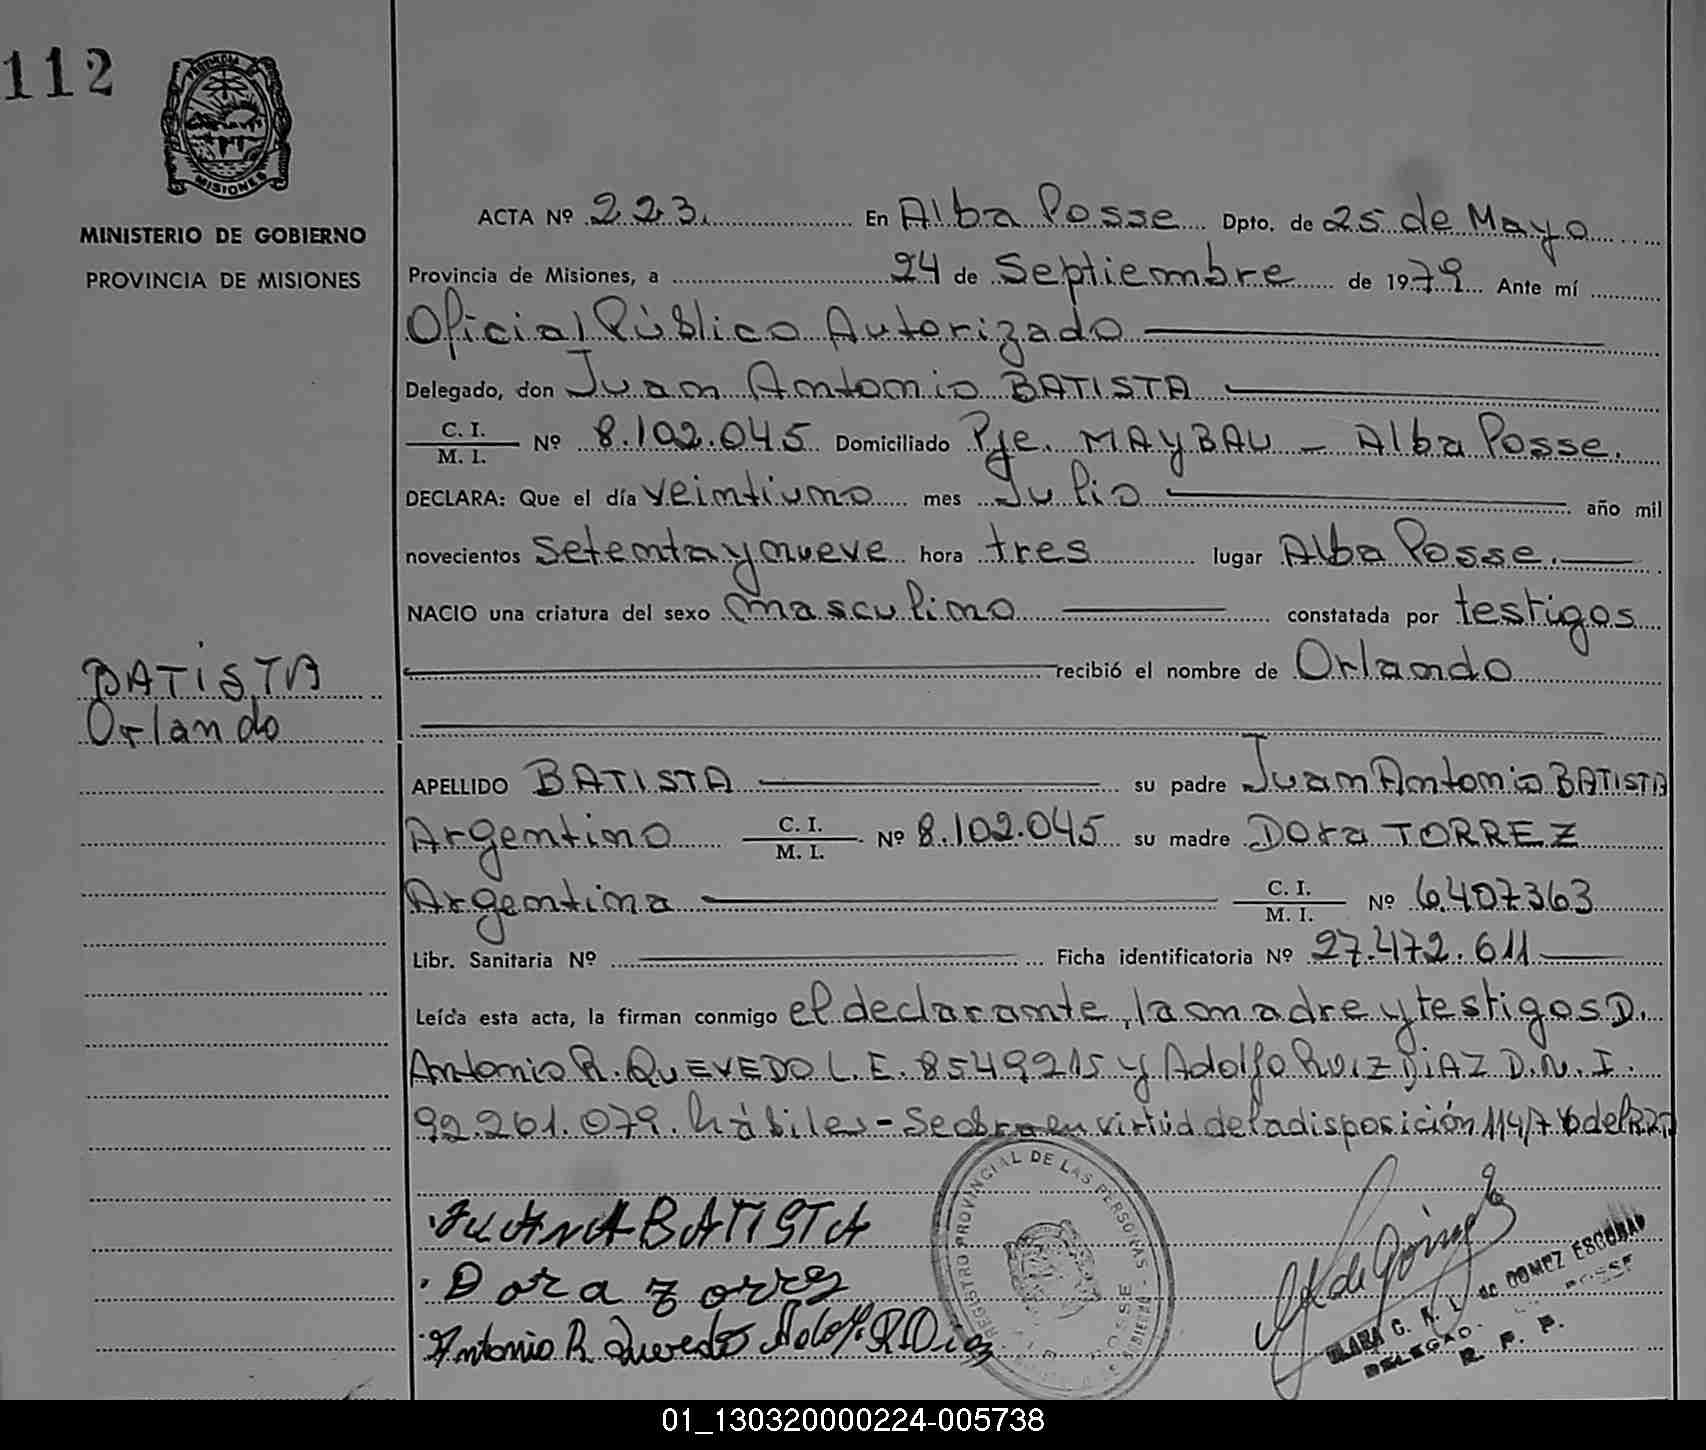 112
PROVINCIA DE
MISIONES
MINISTERIO DE GOBIERNO
PROVINCIA DE MISIONES
BATISTA
Orlando
ACTA Nº 223. En Alba Posse Dpto. de 25 de Mayo
Provincia de Misiones, a 24 de Septiembre de 1979 Ante mí
Oficial Público Autorizado
Delegado, don Juan Antonio BATISTA
C. I. / M. I. Nº 8.102.045 Domiciliado Pje. MAYBAU - Alba Posse.
DECLARA: Que el día veintiuno mes Julio año mil
novecientos setenta y nueve hora tres lugar Alba Posse.
NACIO una criatura del sexo masculino constatada por testigos
recibió el nombre de Orlando
APELLIDO BATISTA su padre Juan Antonio BATISTA
Argentino C. I. / M. I. Nº 8.102.045 su madre Dora TORREZ
Argentina C. I. / M. I. Nº 6.407363
Libr. Sanitaria Nº Ficha identificatoria Nº 27.472.611
Leída esta acta, la firman conmigo el declarante, la madre y testigos D.
Antonio R. QUEVEDO L.E. 8549215 y Adolfo RUIZ DIAZ D.N.I.
92.261.079. hábiles - Se obra en virtud de la disposición 114/76 del
JUAN A BATISTA
Dora Zorrez
Antonio R. Quevedo Adolf. R. Diaz
REGISTRO PROVINCIAL DE LAS PERSONAS
POSSE
CLARA G. N. L. de GOMEZ ESCOBAR
DELEGAD.
POSSE
R. P. P.
01_130320000224-005738